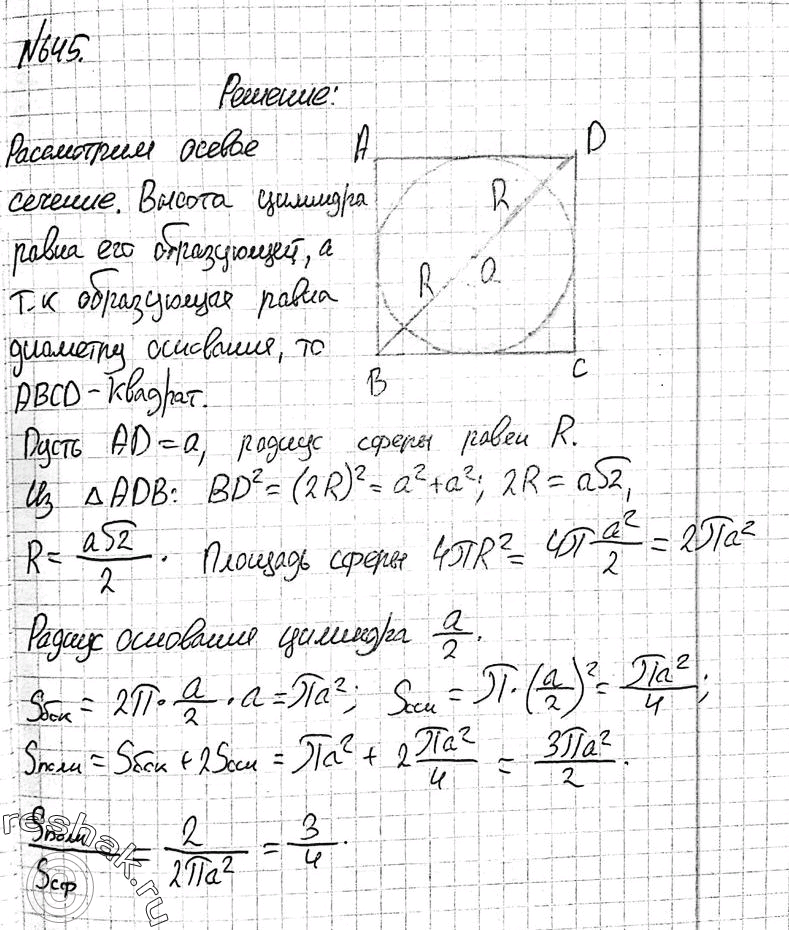 №645.
Решение:
Рассмотрим осевое
сечение. Высота цилиндра
равна его образующей, а
т.к образующая равна
диаметру основания, то
ABCD – квадрат.
A D
R
R a
B C
Пусть AD = a, радиус сферы равен R.
Из △ADB: BD² = (2R)² = a² + a²; 2R = a√2,
R = a√2/2. Площадь сферы 4πR² = 4π a²/2 = 2πa²
Радиус основания цилиндра a/2.
Sбок = 2π · a/2 · a = πa²; Sосн = π · (a/2)² = πa²/4;
Sполн = Sбок + 2Sосн = πa² + 2 πa²/4 = 3πa²/2.
Sполн/Sсф = 2/2πa² = 3/4.
reshak.ru